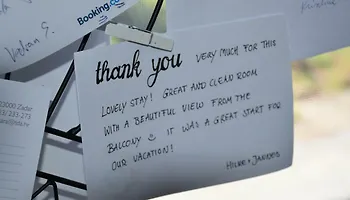 Booking.co
thank you VERY MUCH FOR THIS
LOVELY STAY! GREAT AND CLEAN ROOM
WITH A BEAUTIFUL VIEW FROM THE
BALCONY ☺ IT WAS A GREAT START FOR
OUR VACATION!
23000 Zadar